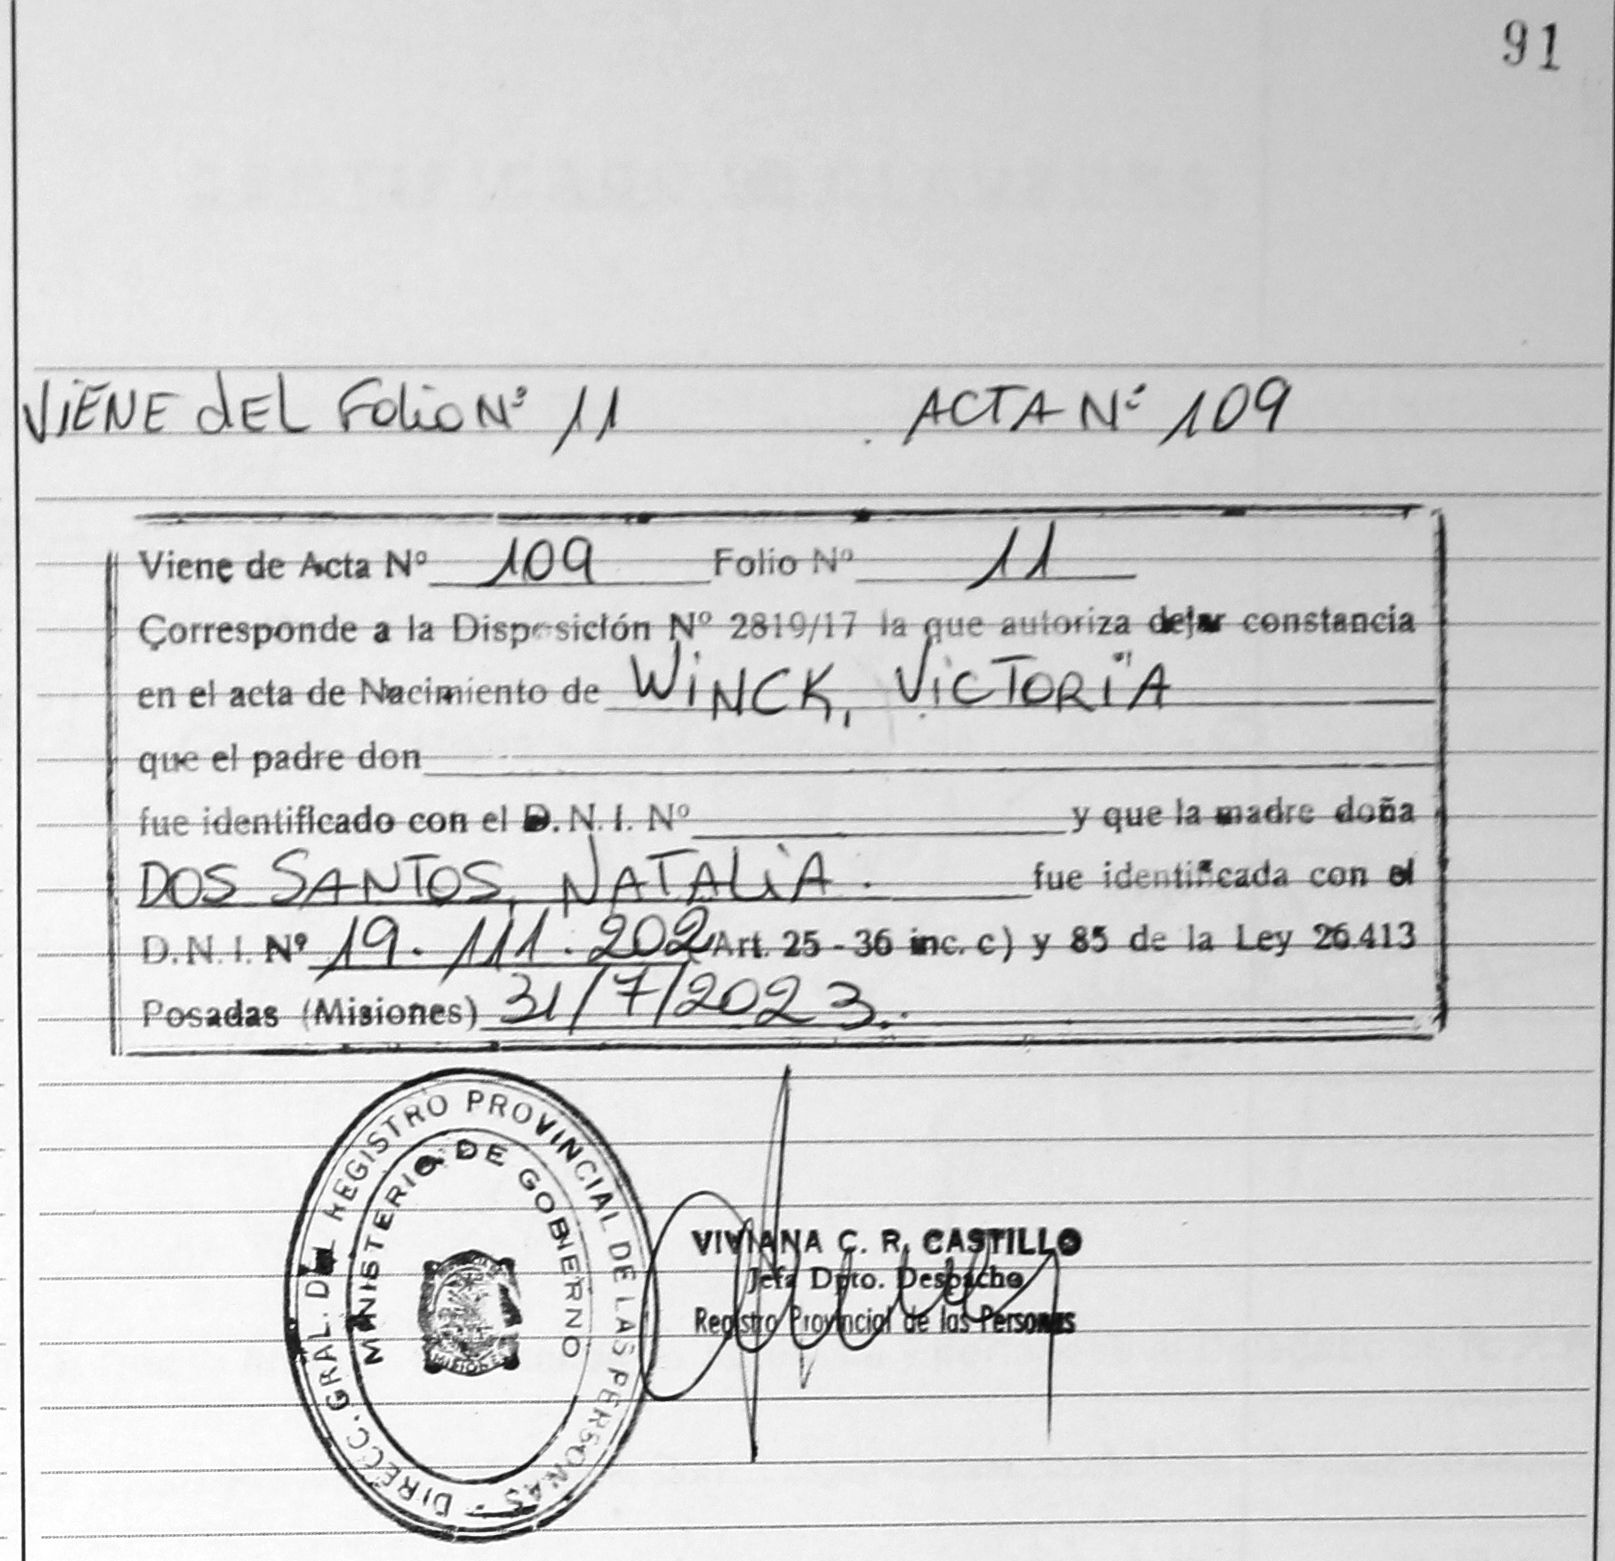 91
ViENE dEL FoLio Nº 11 ACTA Nº 109
Viene de Acta Nº 109 Folio Nº 11
Corresponde a la Disposición Nº 2819/17 la que autoriza dejar constancia
en el acta de Nacimiento de WiNCK, ViCTORiA
que el padre don
fue identificado con el D. N. I. Nº y que la madre doña
DOS SANTOS, NATALiA. fue identificada con el
D. N. I. Nº 19.111.202 Art. 25 - 36 inc. c) y 85 de la Ley 26.413
Posadas (Misiones) 31/7/2023.
DIRECC. GRAL. DEL REGISTRO PROVINCIAL DE LAS PERSONAS -
MINISTERIO DE GOBIERNO
MISIONES
VIVIANA C. R. CASTILLO
Jefa Dpto. Despacho
Registro Provincial de las Personas